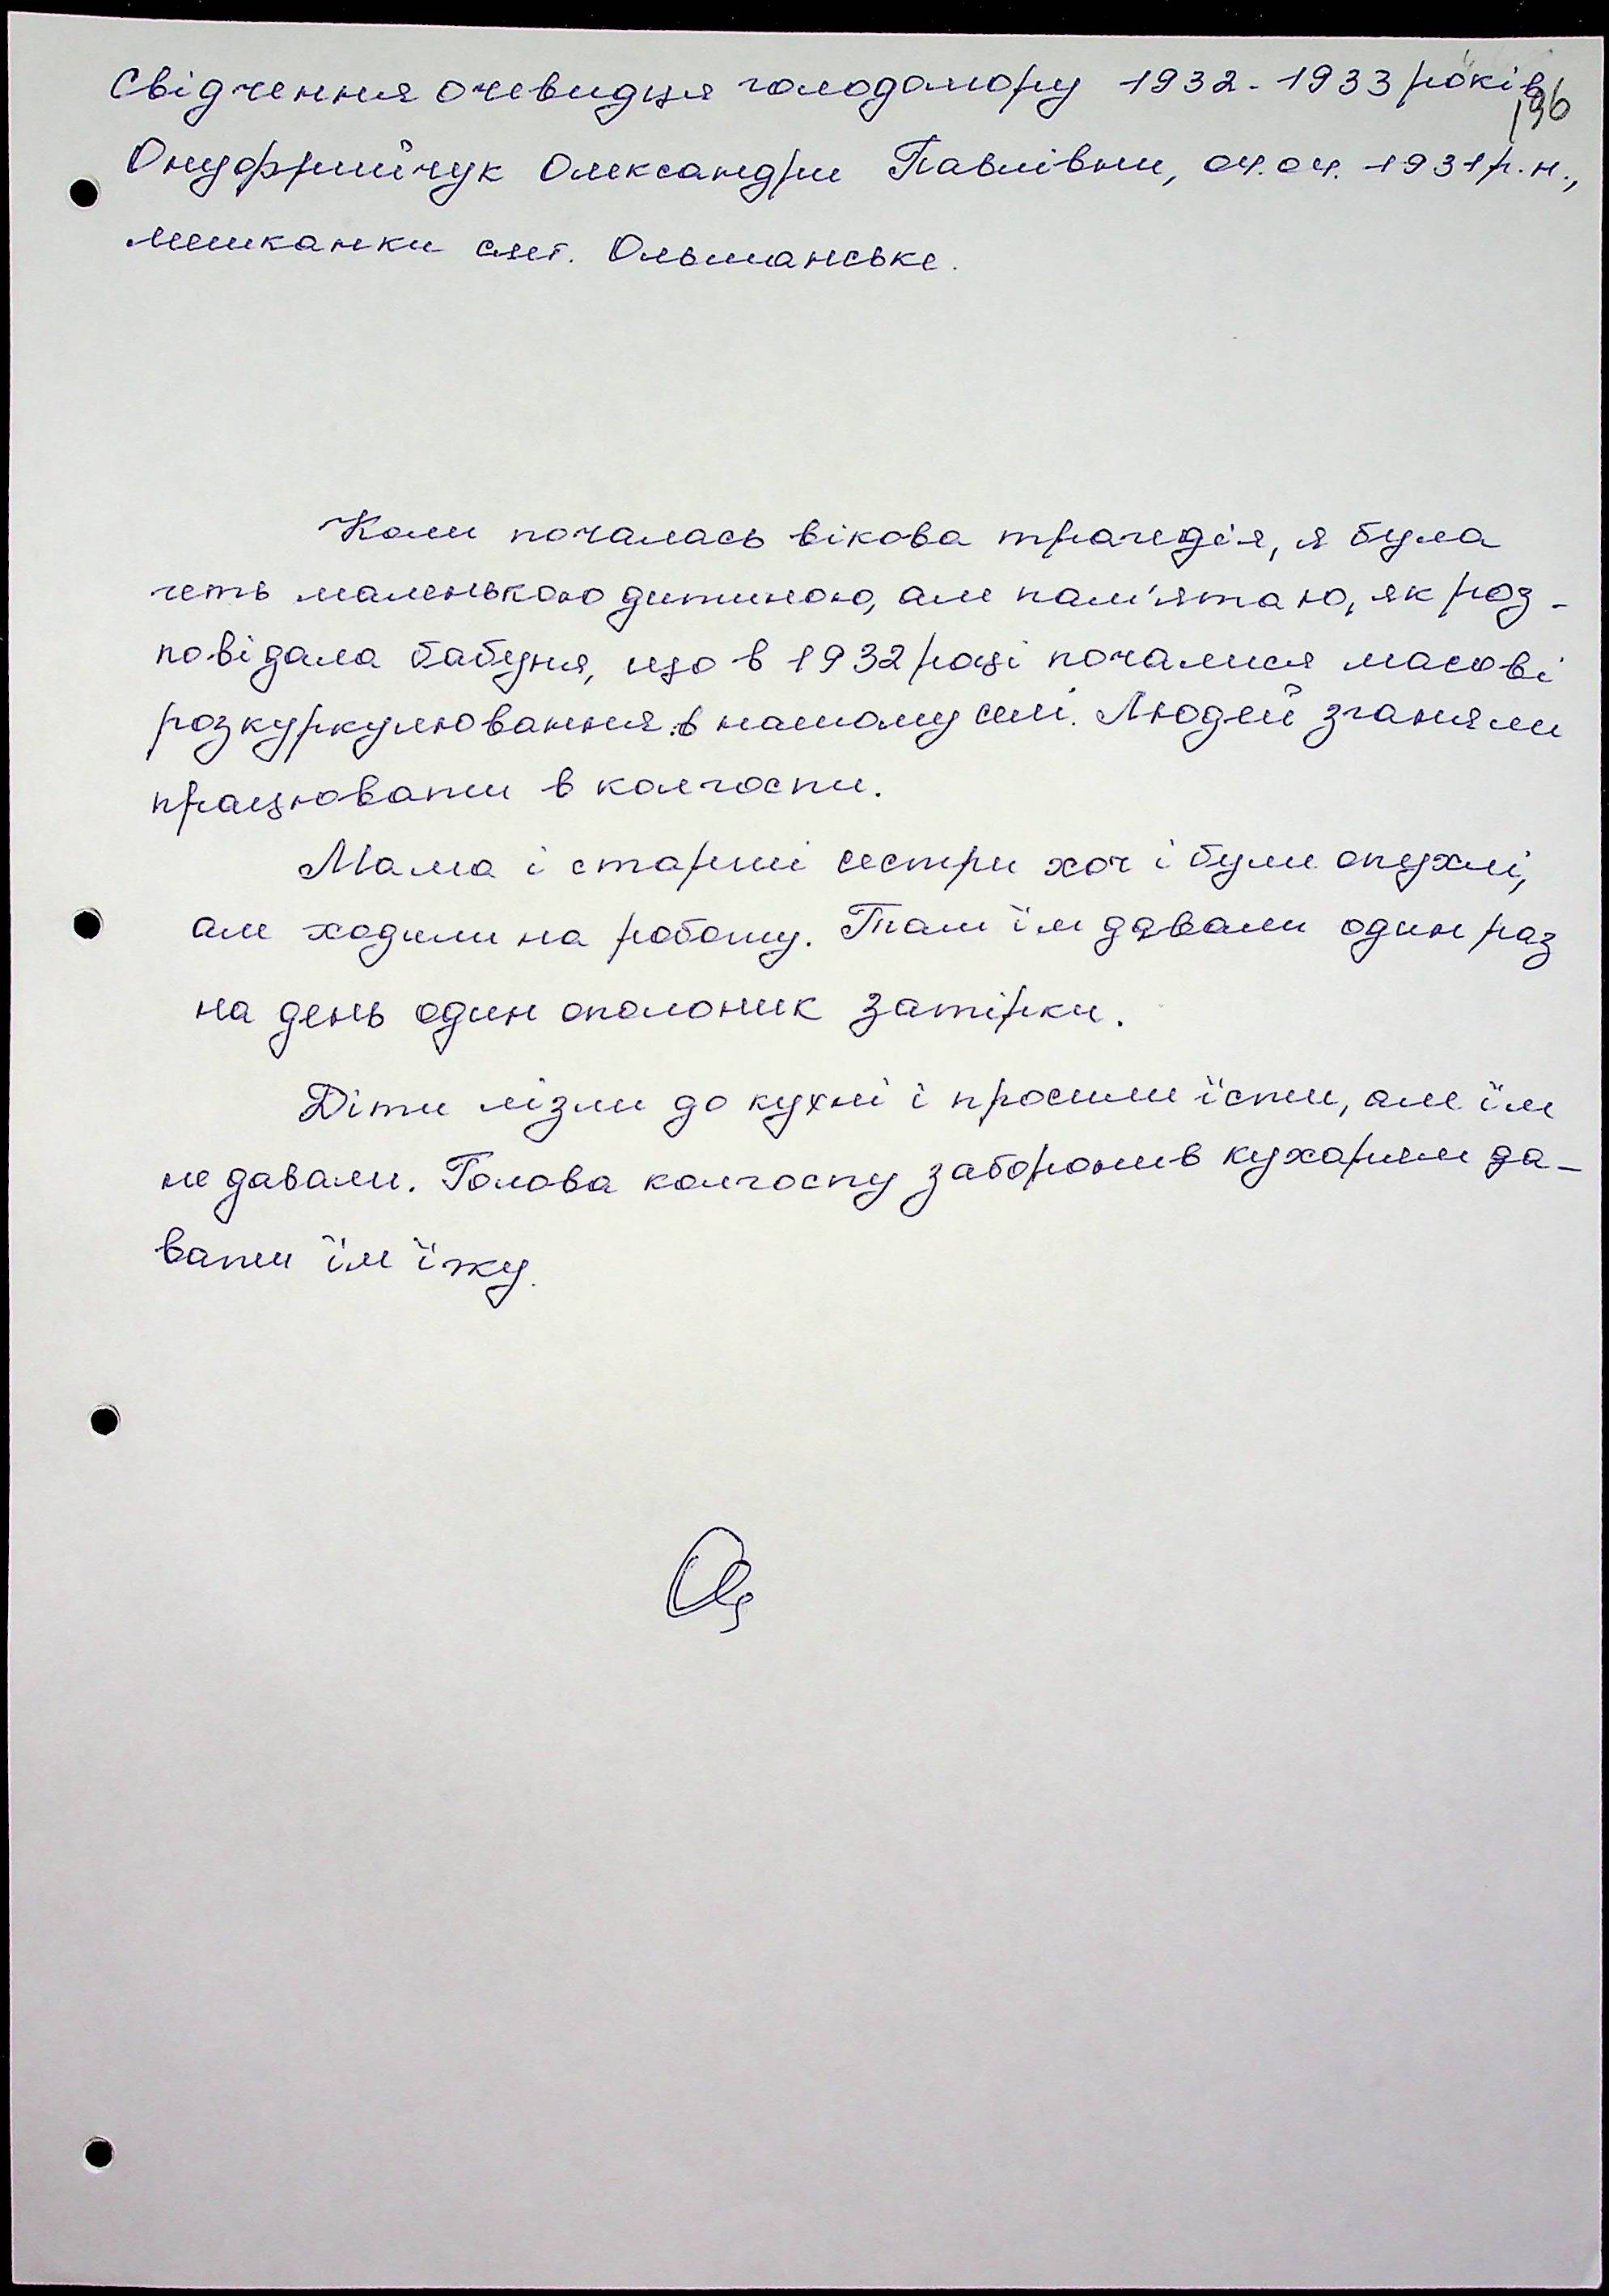 Свідчення очевидця голодомору 1932-1933 років
196
Онуфрийчук Олександри Павлівни, 04.04.1931 р.н.,
мешканки смт. Ольшанське.
Коли почалась вікова трагедія, я була
геть маленькою дитиною, але пам'ятаю, як роз-
повідала бабуня, що в 1932 році почалися масові
розкуркулювання в нашому селі. Людей зганяли
працювати в колгоспи.
Мама і старші сестри хоч і були опухлі,
але ходили на роботу. Там їм давали один раз
на день один ополоник затірки.
Діти лізли до кухні і просили їсти, але їм
не давали. Голова колгоспу заборонив кухарям да-
вати їм їжу.